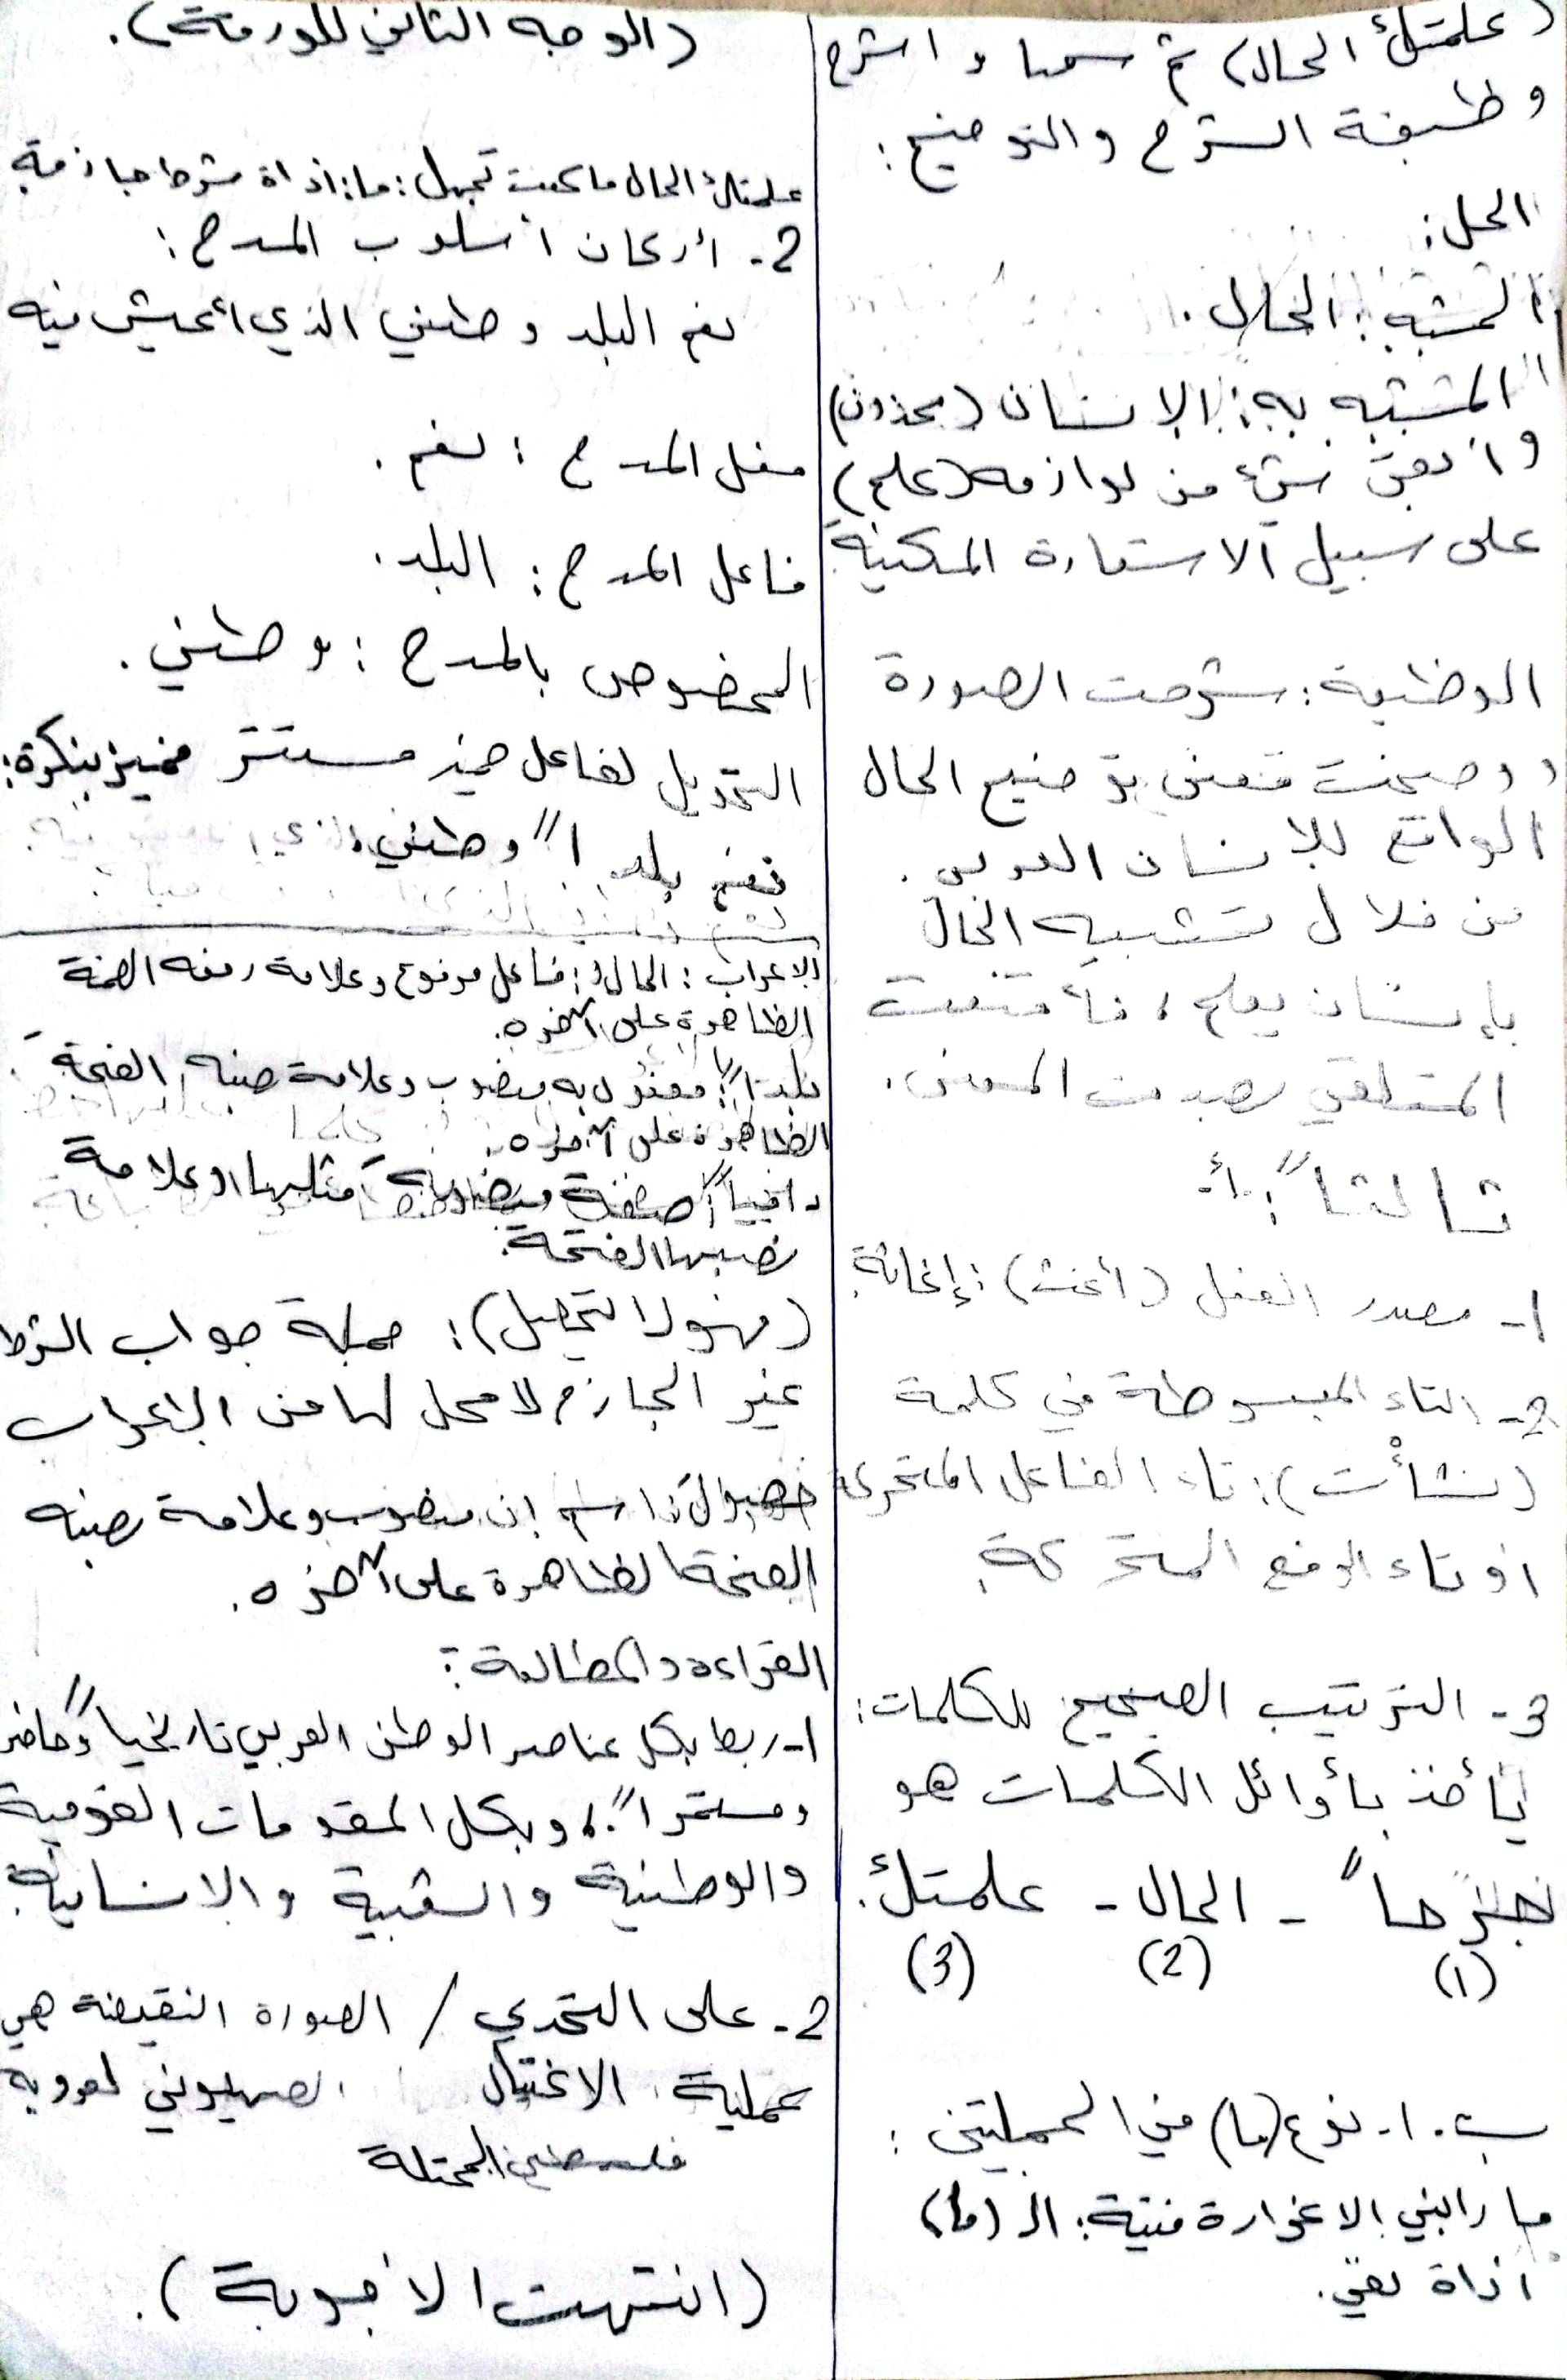 (علمتك الحال) ثم سمها و اشرح
وظيفة الشرح والتوضيح:
الحل:
المشبه: الحال.
المشبه به: الإنسان (محذوف)
وأبقى شيء من لوازمه (علم)
على سبيل الاستعارة المكنية
الوظيفة: شرحت الصورة
ووضحت معنى توضيح الحال
الواقع للإنسان العربي.
من خلال تشبيه الحال
بإنسان يعلم، فأقنعت
المتلقي بصدق المعنى.
ثالثاً: أ-
1- مصدر الفعل (أغث): إغاثة
2- التاء المبسوطة في كلمة
(نشأْت): تاء الفاعل المتحركة
أو تاء الرفع المتحركة.
3- الترتيب الصحيح للكلمات:
يأخذ بأوائل الكلمات هو
جرحاً - الحال - علمتك.
(1) (2) (3)
ب. 1- نوع (ما) في الجملتين:
ما رابني إلا غرارة فتية: الـ (ما)
أداة نفي.
(الوجه الثاني للورقة).
علمتك الحال ما كنت تجهل: ما: أداة شرط جازمة
2- أركان أسلوب المدح:
نعم البلد وطني الذي أعيش فيه
فعل المدح: نعم.
فاعل المدح: البلد.
المخصوص بالمدح: وطني.
التحويل لفاعل ضمير مستتر مميز بنكرة:
نعم بلداً وطني
الإعراب: الحالُ: فاعل مرفوع وعلامة رفعه الضمة
الظاهرة على آخره.
بلداً: مفعول به منصوب وعلامة نصبه الفتحة
الظاهرة على آخره.
صفة منصوبة مثلها وعلامة
نصبها الفتحة.
جملة جواب الشرط
غير الجازم لا محل لها من الإعراب
اسم إن منصوب وعلامة نصبه
الفتحة الظاهرة على آخره.
القراءة والمطالعة:
1- ربط بكل عناصر الوطن العربي تاريخياً وحاضر
ومستمراً، وبكل المقومات القومية
والوطنية والشعبية والإنسانية.
2- على التحدي / الصورة النقيضة هي
عملية الاغتيال الصهيوني لعروبة
فلسطين المحتلة
(انتهت الأجوبة).